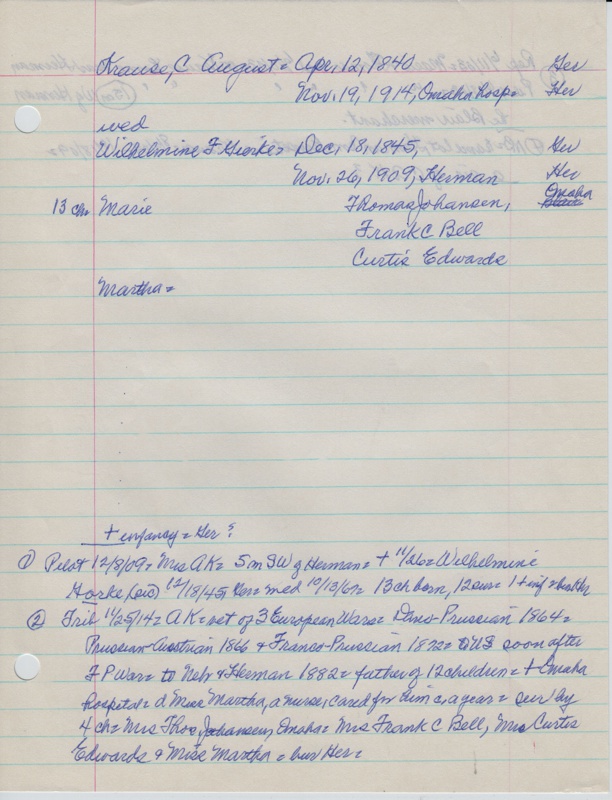 Krause, C August = Apr, 12, 1840 Ger
Nov. 19, 1914, Omaha hosp = Her
wed
Wilhelmine F Gierke = Dec, 18, 1845, Ger
Nov. 26, 1909, Herman Her
13 ch Marie Thomas Johansen, Omaha
Frank C Bell
Curtis Edwards
Martha =
+ infancy = Her ?
① Pilot 12/8/09 = Mrs AK = 5 m SW of Herman = + 11/26 = Wilhelmine
(sic) 12/18/45 Ger = wed 10/13/67 = 13 ch born, 12 sur = 1 + inf = bur Her
② Trib 11/25/14 = AK = vet of 3 European Wars = Dano-Prussian 1864 =
Prussian-Austrian 1866 & Franco-Prussian 1872 = to US soon after
F P War = to Neb & Herman 1882 = father of 12 children = + Omaha
hospital = d Miss Martha, a nurse, cared for him c, a year = sur by
4 ch = Mrs Thos Johansen, Omaha = Mrs Frank C Bell, Mrs Curtis
Edwards & Miss Martha = bur Her =